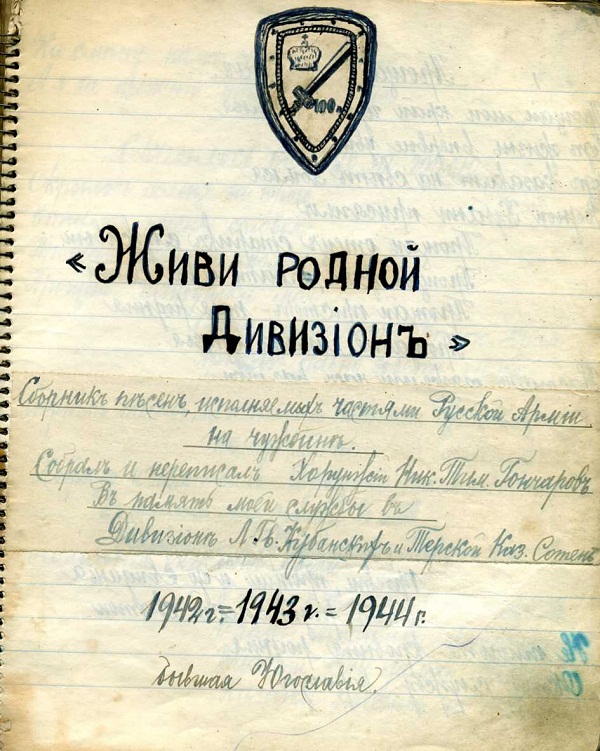 100
«Живи родной
Дивизіонъ»
Сборникъ пѣсенъ, исполняемыхъ частями Русской Арміи
на чужбинѣ.
Собралъ и переписалъ Хорунжій Ник. Тим. Гончаровъ
Въ память моей службы въ
Дивизіонѣ Л. Гв. Кубанскихъ и Терской Каз. Сотенъ
1942 г. = 1943 г. = 1944 г.
бывшая Югославія.